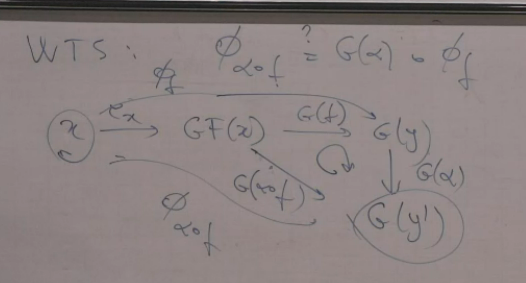 WTS: ϕ_{α∘f} ?= G(α) ∘ ϕ_f
ϕ_f
x τ_x GF(x) G(f) G(y)
G(α∘f) G(α)
ϕ_{α∘f} G(y')